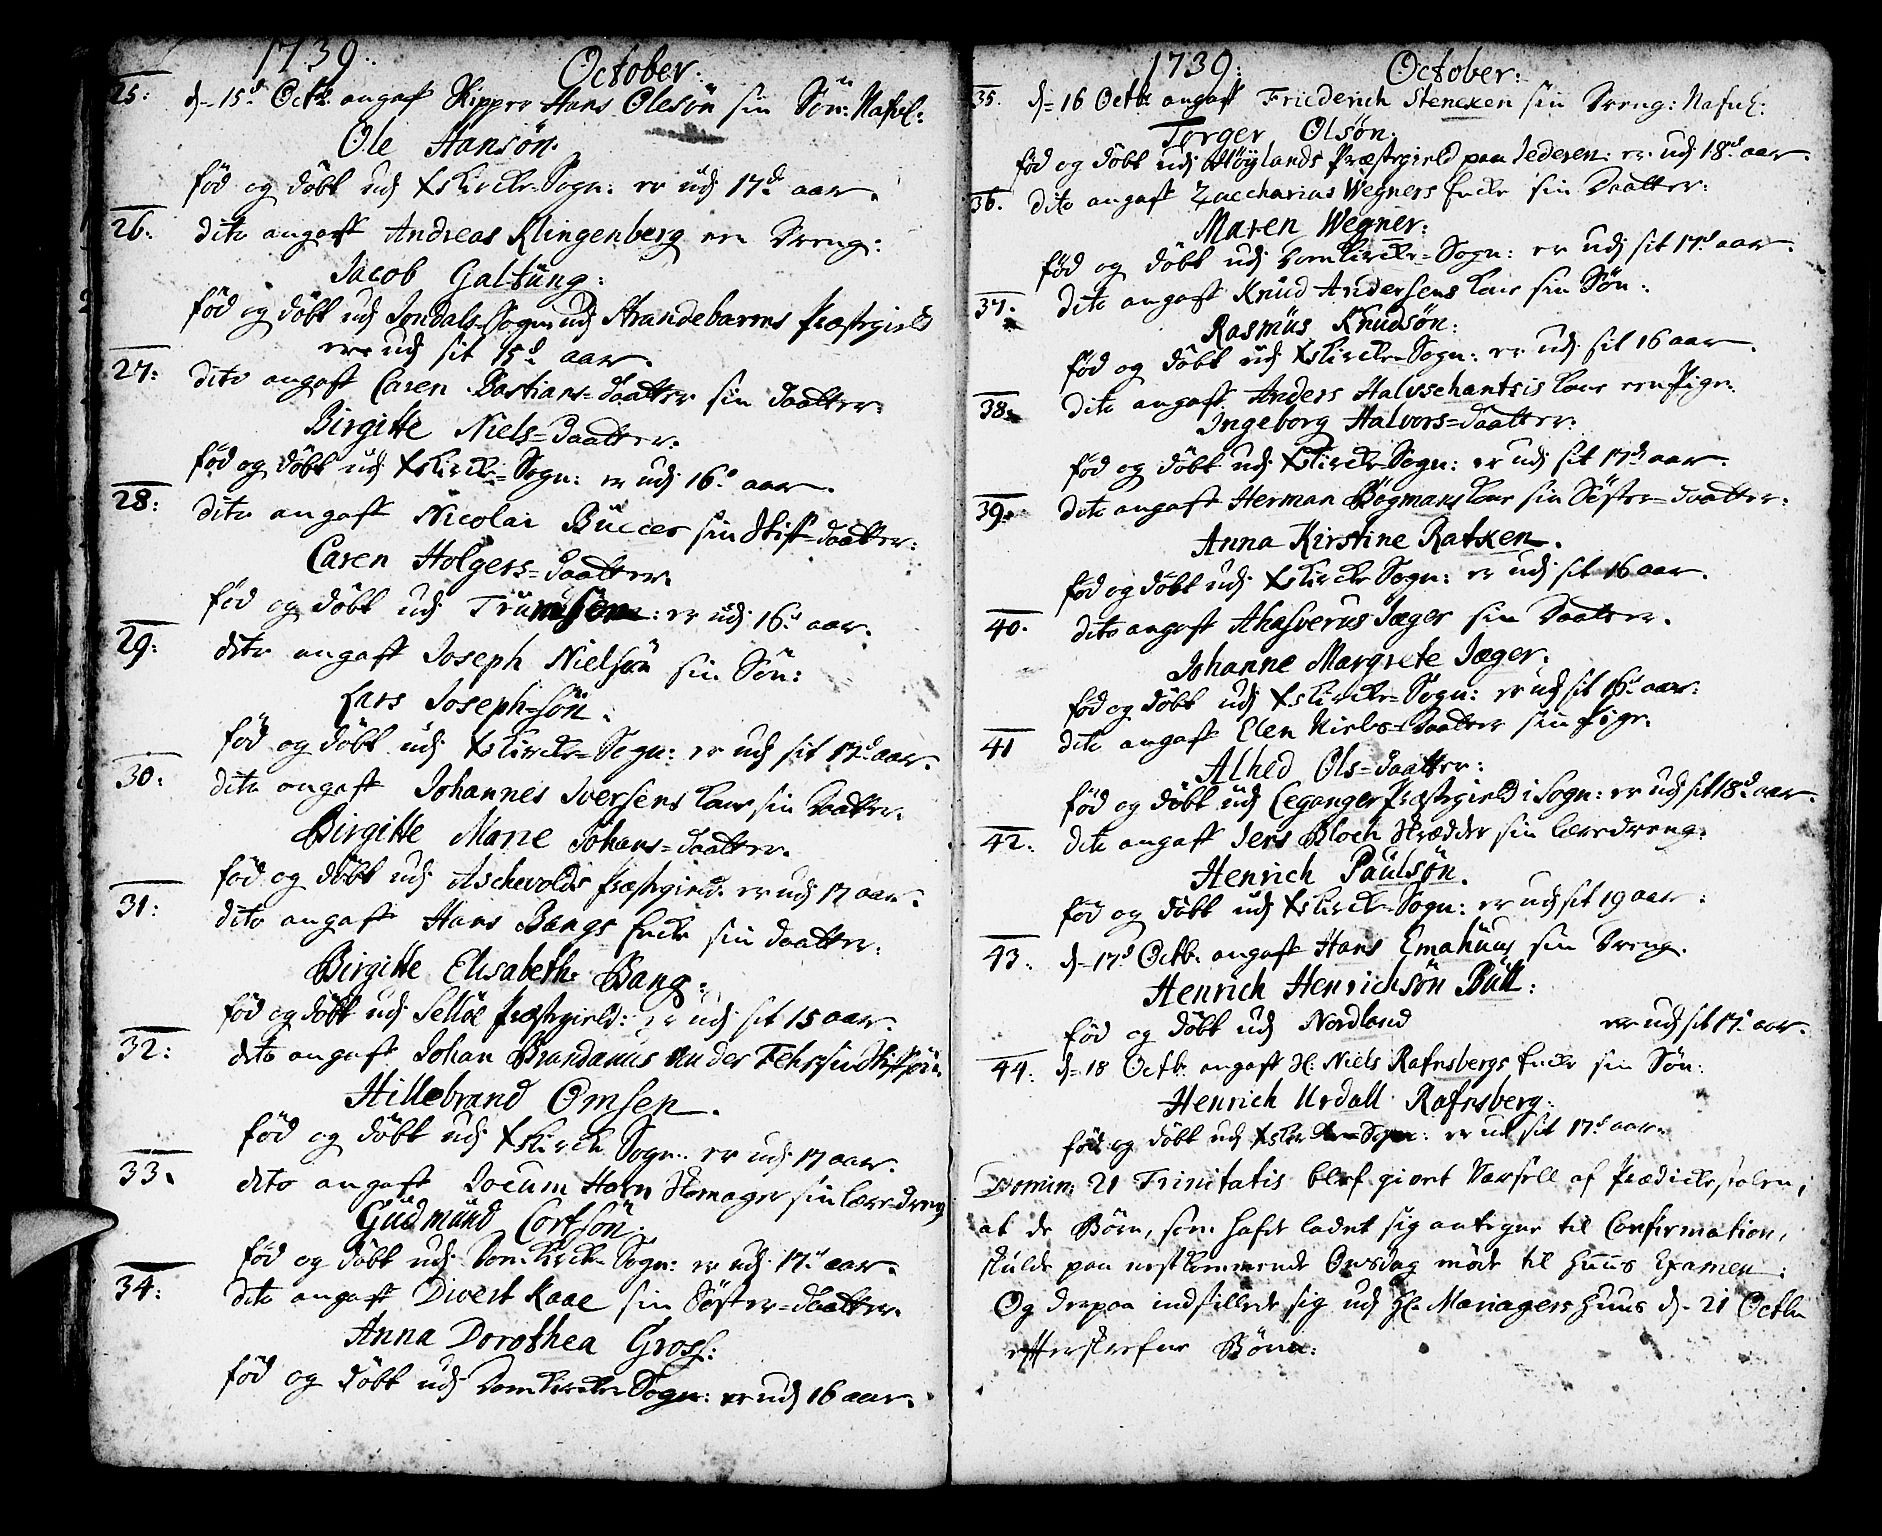 1739. October.
25: d. 15.d Octb: angaf Skipper Hans Olesön sin Sön: Nafnl:
Ole Hansön.
fød og døbt udj Xskircke-Sogn: er udj 17.d aar.
26. dito angaf Andreas Klingenberg een Dreng:
Jacob Galtüng:
fød og døbt udj Jondals-Sogn udj Strandebarms Præstegield
er udj sit 15.d aar.
27: dito angaf Caren Bastians=Daatter sin Daatter:
Birgitte Niels=Daatter.
fød og døbt udj Xskircke=Sogn: er udj 16.d aar.
28: dito angaf Nicolai Bücces sin Stif=Daatter:
Caren Holgers=Daatter.
fød og døbt udj : er udj 16.d aar.
29: dito angaf Joseph Nielsön sin Sön:
Lars Joseph=sön.
fød og døbt udj Xskircke=Sogn: er udj sit 17.d aar.
30: dito angaf Johannes Iversens Kone sin Daatter.
Birgitte Marie Johans=Daatter.
fød og døbt udj Aschevolds Præstegield. er udj 17 aar.
31: dito angaf Hans Bangs Encke sin Daatter:
Birgitte Elisabeth Bang:
fød og døbt udj Selløe Præstegield: er udj sit 15 aar.
32: dito angaf Johan Brandanus von der Fehr sin Stifsön.
Hillebrand Omsen.
fød og døbt udj Xskirck Sogn: er udj 17 aar.
33. dito angaf Jocum Horn Skomager sin læredreng
Gudmünd Cortsön.
fød og døbt udj Domkircke Sogn: er udj 17.d aar.
34: dito angaf Divert Kaae sin Søster=Daatter.
Anna Dorothea Gross:
fød og døbt udj Domkircke Sogn: er udj 16 aar.
1739: October:
35. d. 16 Octb: angaf Friederich Stencken sin Dreng: Nafnl:
Torger Olsøn.
fød og døbt udj Høylands Præstegield paa Jederen: er udj 18.d aar.
36. dito angaf Zaccharias Wegners Encke sin Daatter:
Maren Wegner:
fød og døbt udj Domkircke-Sogn: er udj sit 17.d aar.
37. dito angaf Knüd Andersens Kone sin Sön:
Rasmüs Knudsøn:
fød og døbt udj Xskircke Sogn: er udj sit 16 aar.
38. dito angaf Anders Halvschantsis Kone een Pige:
Ingeborg Halvors=Daatter:
fød og døbt udj Xskircke Sogn: er udj sit 17.d aar.
39. dito angaf Herman Bøgmans Kone sin Søster=Daatter:
Anna Kirstine Ratken.
fød og døbt udj Xskircke Sogn: er udj sit 16 aar.
40. dito angaf Ahasverus Jæger sin Daatter.
Johanne Margrete Jæger.
fød og døbt udj Xskircke=Sogn: er udj sit 16.d aar:
41 dito angaf Elen Niels=Daatter sin Pige.
Alhed Ols=Daatter:
fød og døbt udj Leganger Præstegield i Sogn: er udj sit 18.d aar.
42. dito angaf Jens Bloch Skrædder sin læredreng:
Henrich Paulsøn.
fød og døbt udj Xskircke Sogn: er udj sit 19 aar:
43. d. 17.d Octb: angaf Hans Emahüus sin Dreng.
Henrich Henrichsön Büll:
fød og døbt udj Nordland er udj sit 17.d aar.
44. d. 18 Octb: angaf Hl: Niels Rafnsbergs Encke sin Sön:
Henrich Urdall Rafnsberg:
fød og døbt udj Xskircke-Sogn: er udj sit 17.d aar.
Domin: 21 Trinitatis blef giort Varsell af Prædickestolen,
at de Børn, som hafde ladet sig antegne til Confirmation,
skulde paa nestkommende Onsdag møde til Huus Examen:
Og derpaa indstillede sig udj Hl: Mariagers Huus d. 21 Octb:
efterskrefne Børn: